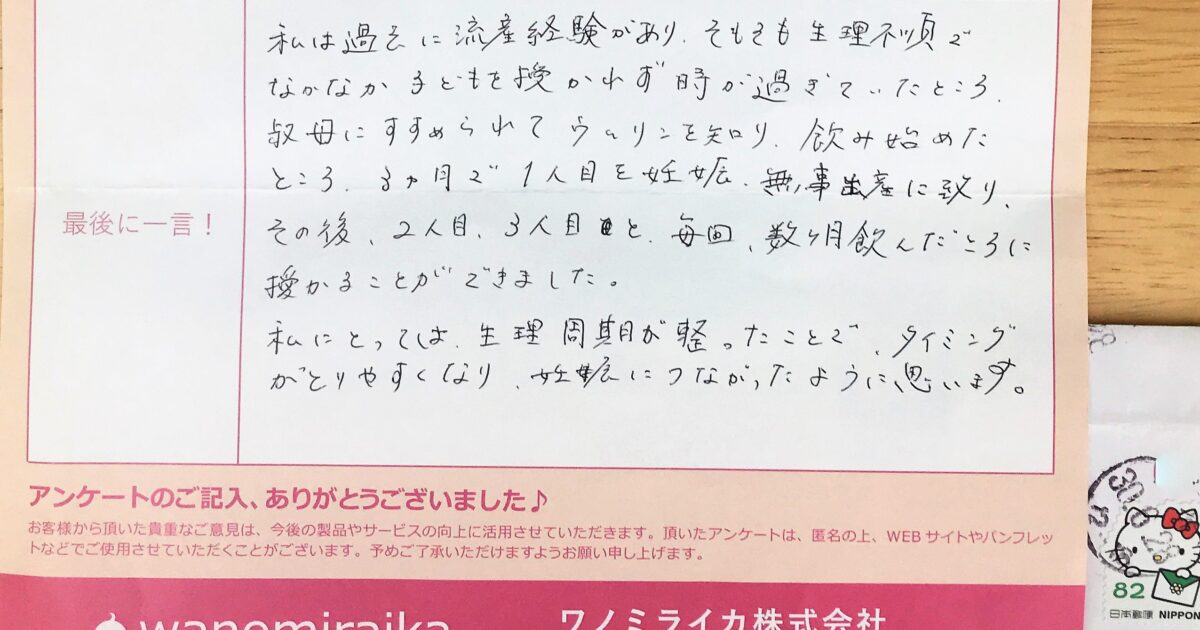 私は過去に流産経験があり、そもそも生理不順で
なかなか子どもを授かれず時が過ぎていたところ、
叔母にすすめられてウムリンを知り、飲み始めた
ところ、3ヵ月で1人目を妊娠、無事出産に致り、
最後に一言!
その後、2人目、3人目と、毎回、数ヶ月飲んだころに
授かることができました。
私にとっては、生理周期が整ったことで、タイミング
がとりやすくなり、妊娠につながったように思います。
アンケートのご記入、ありがとうございました♪
お客様から頂いた貴重なご意見は、今後の製品やサービスの向上に活用させていただきます。頂いたアンケートは、匿名の上、WEBサイトやパンフレッ
トなどでご使用させていただくことがございます。予めご了承いただけますようお願い申し上げます。
wanomiraika
ワノミライカ株式会社
82
日本郵便 NIPPON